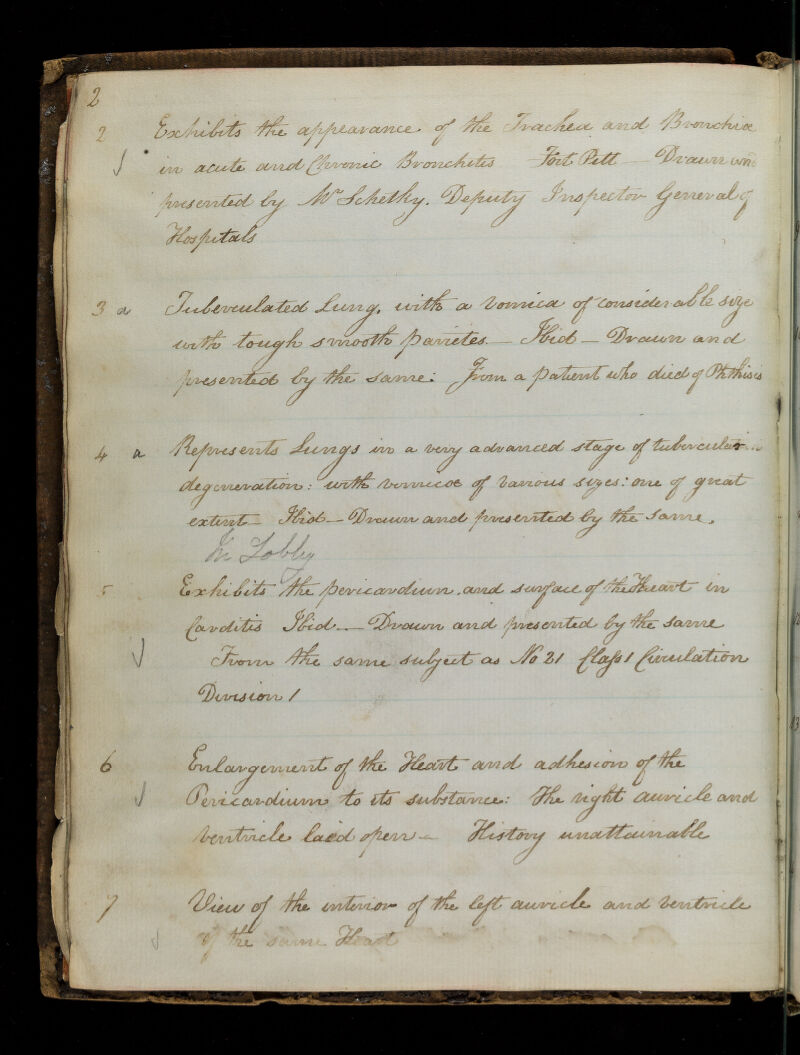 2
2 Exhibits the appearance of the Trachea and Bronchiæ
in acute and Chronic Bronchitis Fort Pitt — Drawn and
presented by Mr Schetky. Deputy Inspector General of
Hospitals
3 a Tuberculated Lung, with a vomica of considerable size
with tough smooth parietes — Ibid — Drawn and
presented by the same: From a patient who died of Phthisis
4 a Represents Lungs in a very advanced stage of tubercular
degeneration: with vomicæ of various sizes: one of great
extent — Ibid — Drawn and presented by the same.
In Lobby
5 Exhibits the pericardium and surface of the Heart in
Carditis Ibid — Drawn and presented by the same
From the same subject as No 21 Class 1 Circulation
Division 1
6 Enlargement of the Heart and adhesion of the
Pericardium to its substance: The right auricle and
ventricle laid open — History unattainable
7 View of the interior of the left auricle and ventricle
of the same Heart